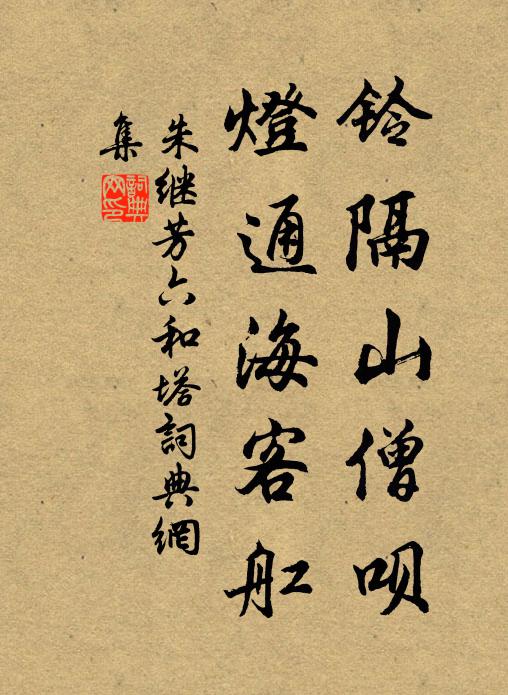 铃隔山僧呗
燈通海客舡
朱继芳六和塔詞典網
集
詞典网印